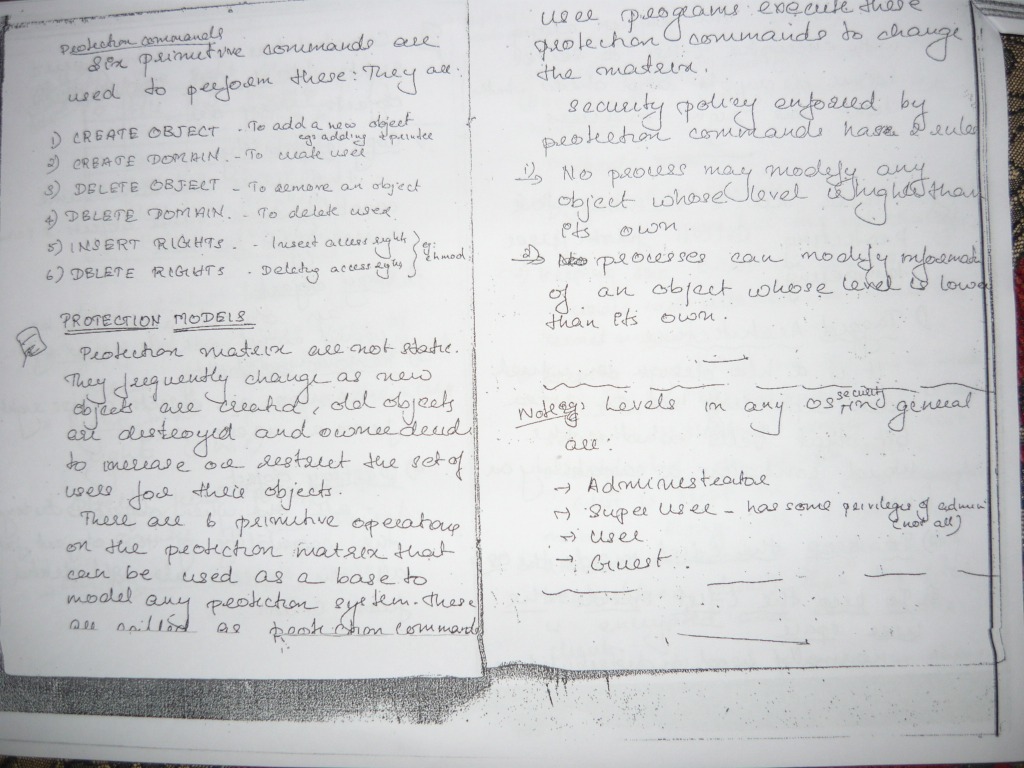 Protection commands
Six primitive commands are
used to perform these: They are:
1) CREATE OBJECT - To add a new object
eg: adding printer
2) CREATE DOMAIN. - To create user
3) DELETE OBJECT - To remove an object
4) DELETE DOMAIN. - To delete user
5) INSERT RIGHTS. - Insert access rights
6) DELETE RIGHTS. - Deleting access rights
eg: chmod.
PROTECTION MODELS
Protection matrix are not static.
They frequently change as new
objects are created, old objects
are destroyed and owner decide
to increase or restrict the set of
users for their objects.
There are 6 primitive operations
on the protection matrix that
can be used as a base to
model any protection system. These
are called as protection commands
user programs execute these
protection commands to change
the matrix.
security policy enforced by
protection commands has 2 rules
1) No process may modify any
object whose level is higher than
its own.
2) processes can modify informati
of an object whose level is lower
than its own.
Note: eg: Levels in any OS security in general
are:
→ Administrator
→ Super User - has some privileges of admini
not all)
→ User
→ Guest.